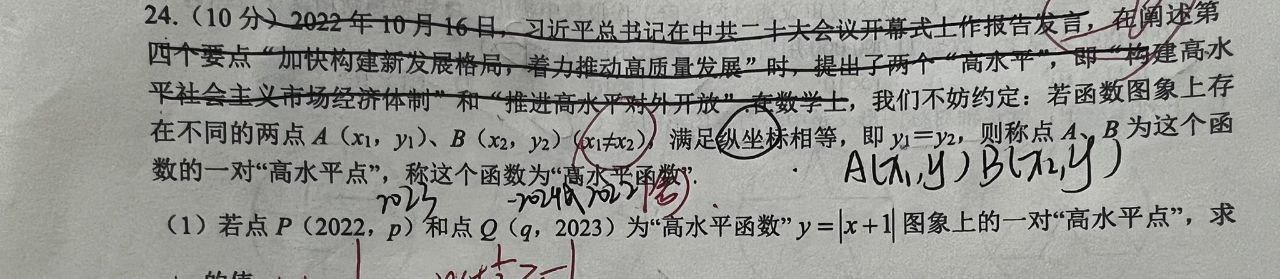 24.（10 分）2022 年 10 月 16 日，习近平总书记在中共二十大会议开幕式上作报告发言，在阐述第
四个要点“加快构建新发展格局，着力推动高质量发展”时，提出了两个“高水平”，即“构建高水
平社会主义市场经济体制”和“推进高水平对外开放”.在数学上，我们不妨约定：若函数图象上存
在不同的两点 A（x₁，y₁）、B（x₂，y₂）（x₁≠x₂），满足纵坐标相等，即 y₁＝y₂，则称点 A、B 为这个函
数的一对“高水平点”，称这个函数为“高水平函数”.
A(x₁,y) B(x₂,y)
2023 -2024或2022
（1）若点 P（2022，p）和点 Q（q，2023）为“高水平函数” y＝|x＋1| 图象上的一对“高水平点”，求
的值